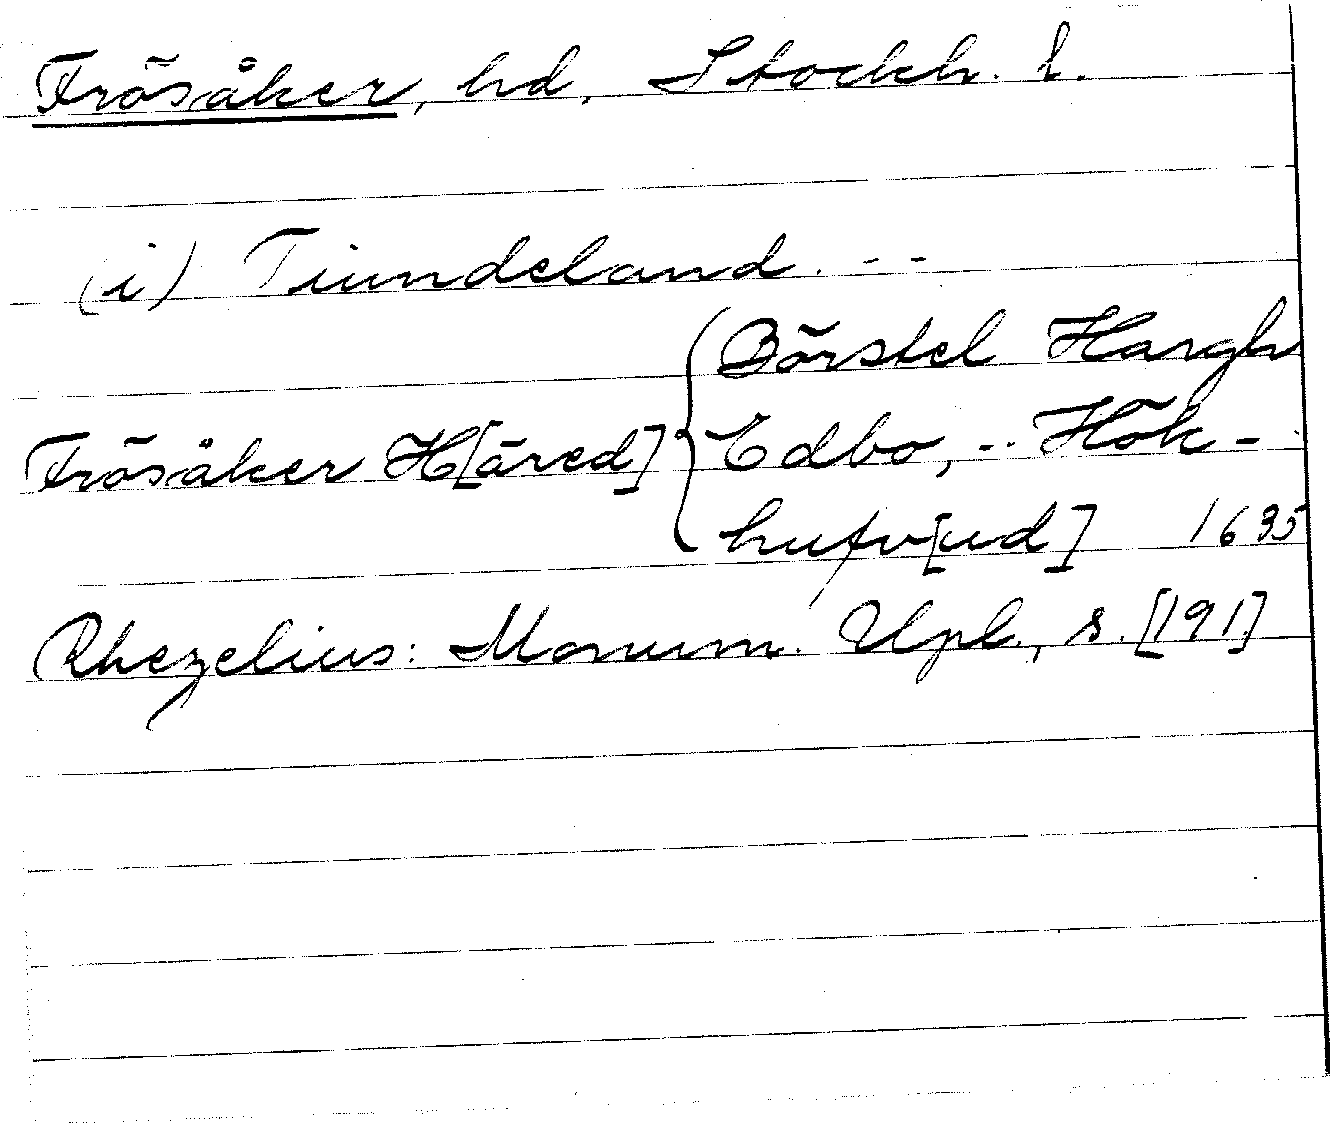 Frösåker, hd, Stockh. l.
(i) Tiundeland. --
{Börstel Hargh
Frösåker H[äred] Edbo, -- Hök-
hufv[ud] 1635
Rhezelius: Monum. Upl., s. [191]